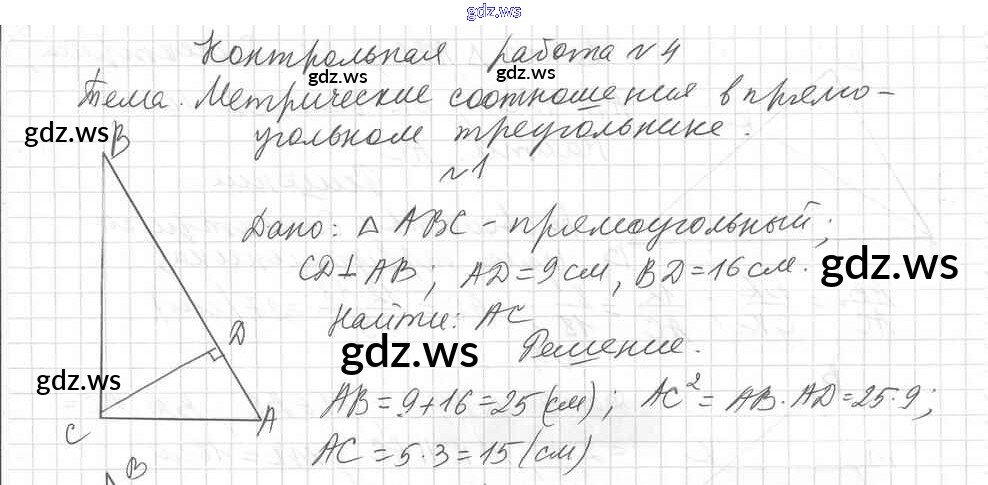 gdz.ws
Контрольная работа №4
gdz.ws gdz.ws
Тема. Метрические соотношения в прямо-
gdz.ws
угольном треугольнике.
B
№1
Дано: △ ABC - прямоугольный;
CD⊥AB; AD=9 см, BD=16 см.
gdz.ws
Найти: AC
D
gdz.ws
Решение.
gdz.ws
AB=9+16=25(см); AC²=AB·AD=25·9;
C
A
AC=5·3=15(см)
B